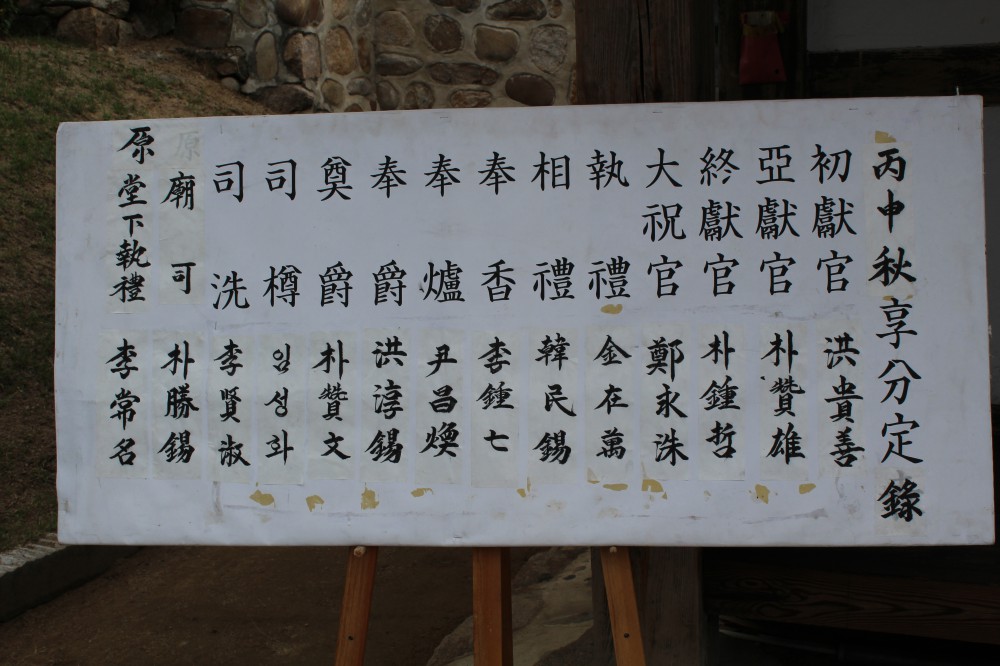 丙申秋享分定錄
初獻官 洪貴善
亞獻官 朴贊雄
終獻官 朴鍾哲
大祝官 鄭永洙
執禮 金在萬
相禮 韓民錫
奉香 李鍾七
奉爐 尹昌煥
奉爵 洪淳錫
奠爵 朴贊文
司樽 임성화
司洗 李賢淑
廟司 朴勝錫
原堂下執禮 李常名